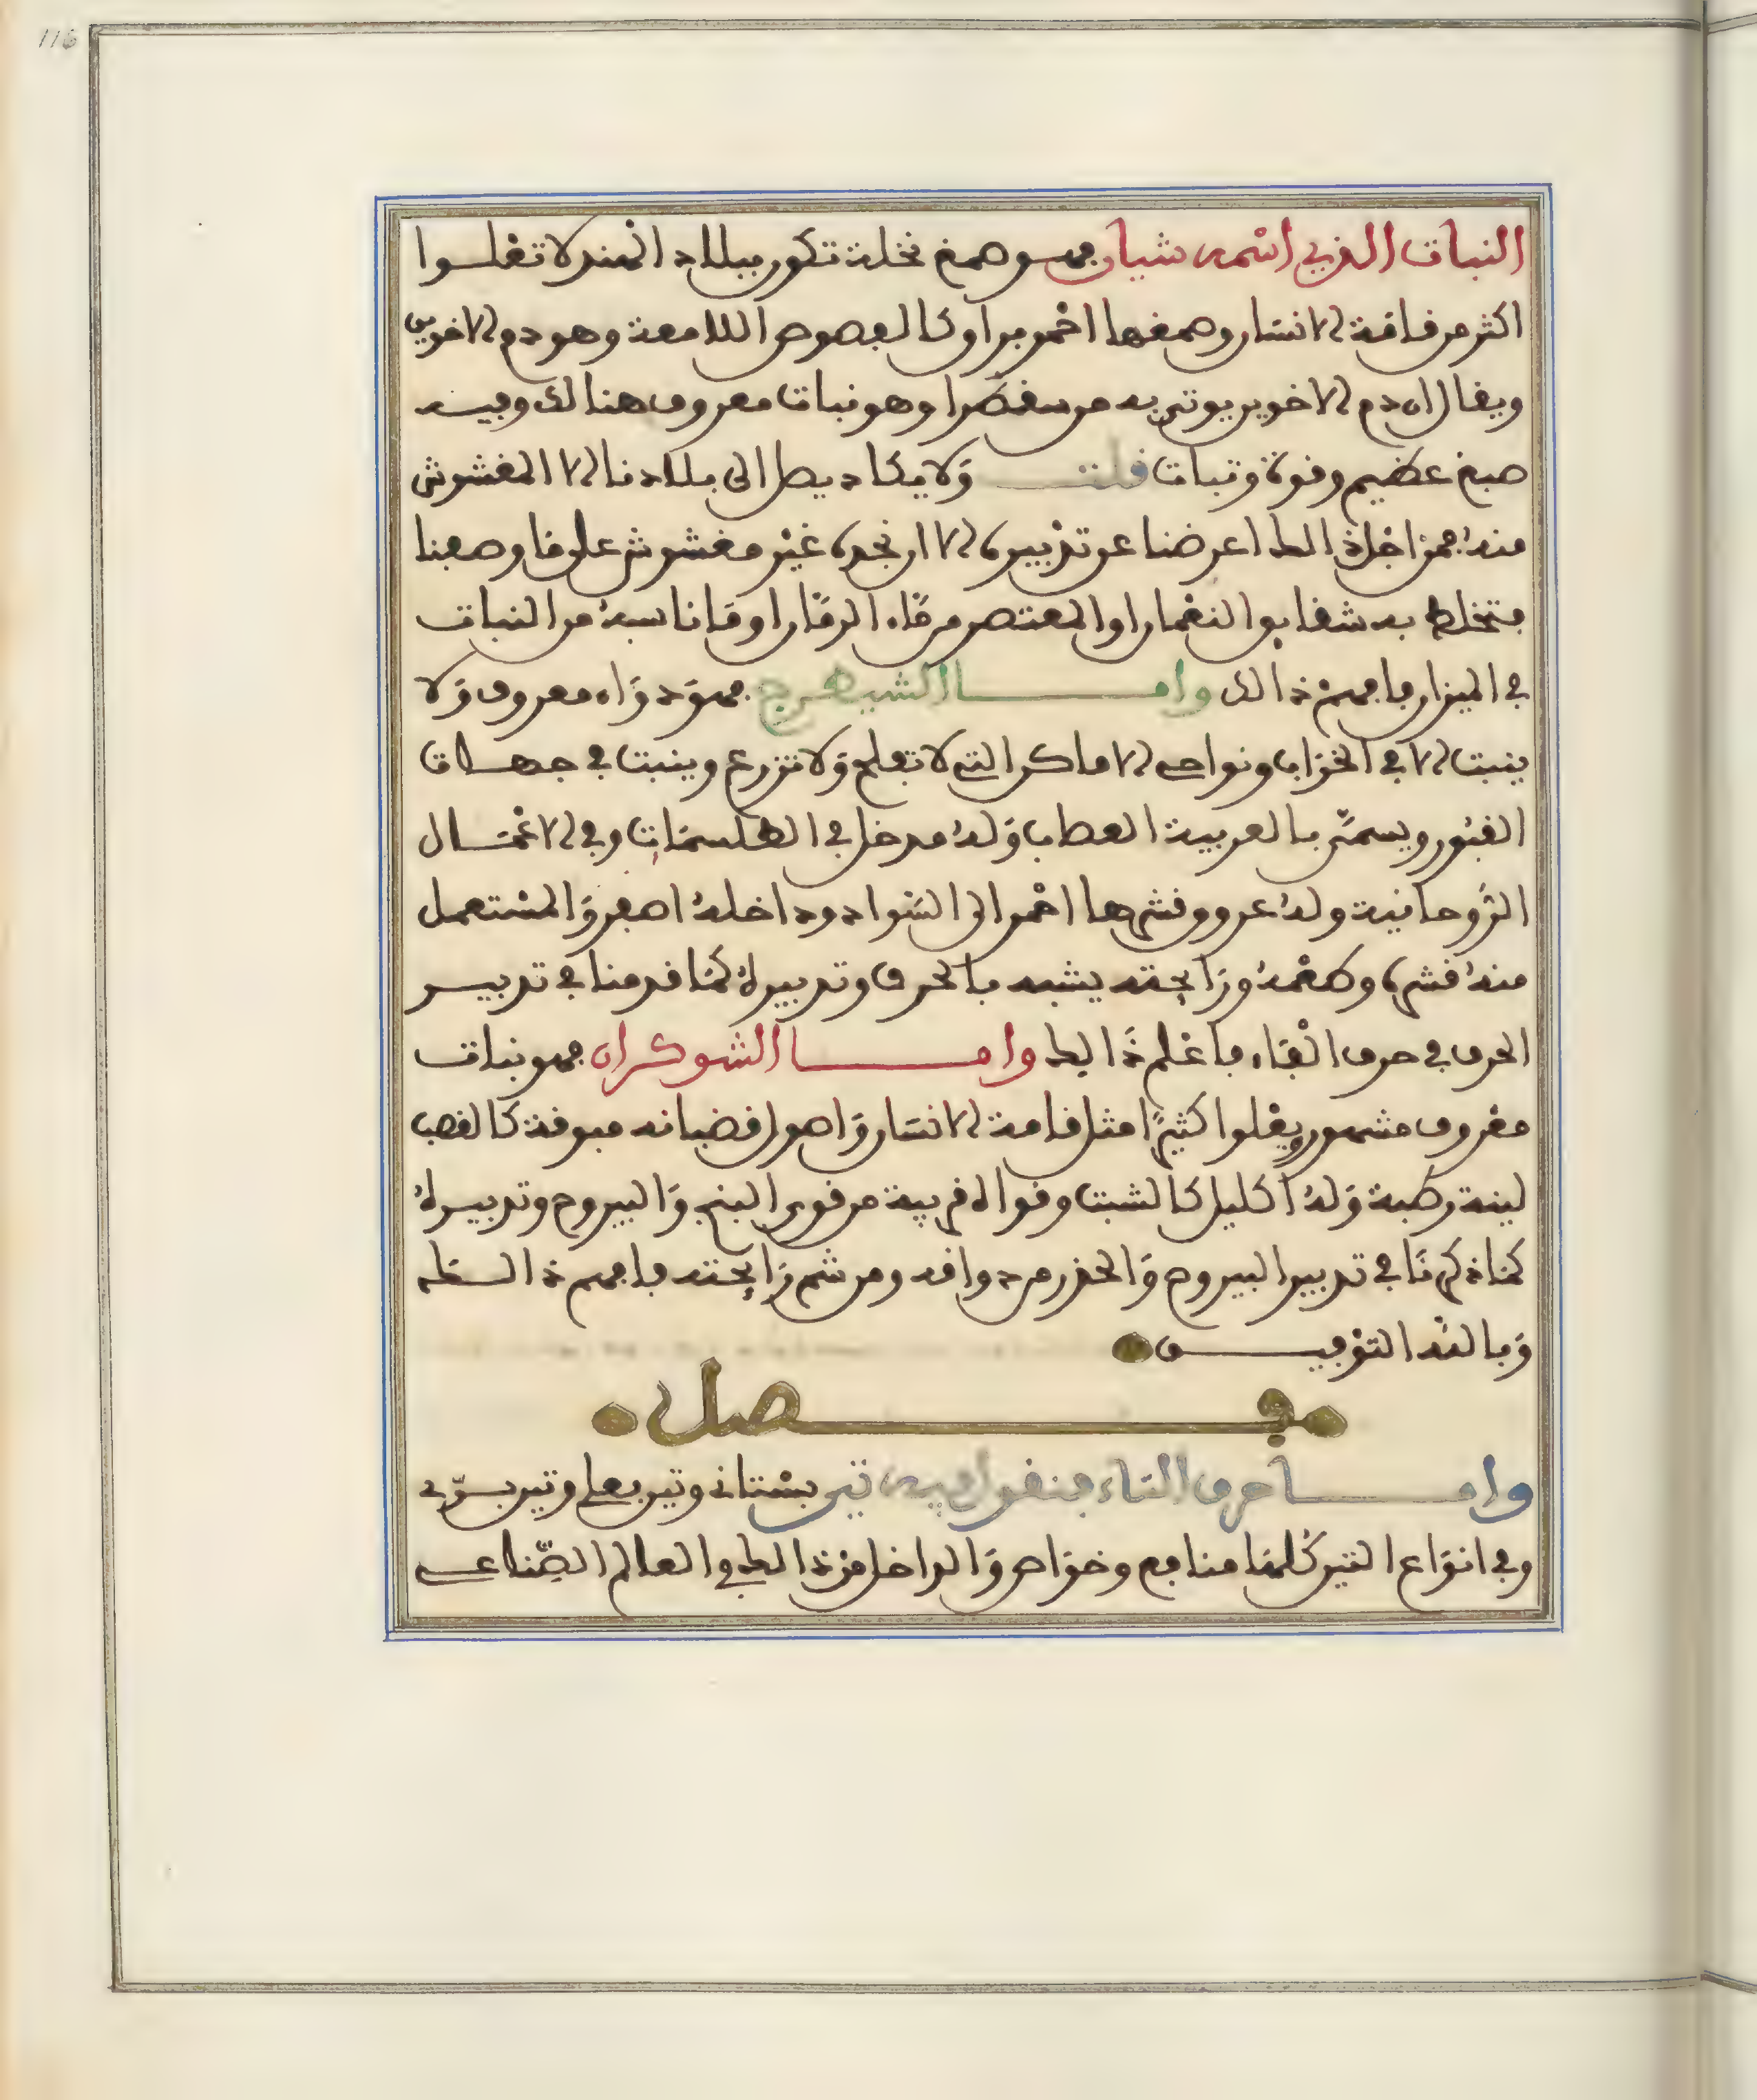 116
النبات الذي اسمه شيان فهو صمغ نخلة تكون ببلاد الهند لا تعلوا
اكثر من قامة الانسان وصمغها احمر براق كالفصوص اللامعة وهو دم الاخوين
ويقال ان دم الاخوين يوتى به من سقطرا وهو نبات معروف هنالك وفيه
صبغ عظيم وقوة وثبات قلت ولا يكاد يصل الى بلادنا الا المغشوش
منه فمن اجل ذالك اعرضنا عن تدبيره الا ان نجده غير مغشوش على ما وصفنا
فتخلط به شقايق النعمان او المعتصر من ماء الرمان او ما ناسبه من النبات
في الميزان فافهم ذالك واما الشيطرج فهو دواء معروف ولا
ينبت الا في الخراب ونواحي الاماكن التي لا تفلح ولا تزرع وينبت في جهات
القبور ويسمى بالعربية العصاب وله مدخل في الطلسمات وفي الاعمال
الروحانية وله عروق قشرها احمر الى السواد وداخله اصفر والمستعمل
منه قشره وطعمه ورايحته يشبه بالحرف وتدبيره كما قدمنا في تدبير
الحرف في حرف الفاء فاعلم ذالك واما الشوكران فهو نبات
معروف مشهور ويعلوا كثيرا مثل قامة الانسان واصول قضبانه مجوفة كالقصب
لينة رطبة وله اكليل كالشبت وقواه قريبة من قوى البنج واليبروح وتدبيره
كما ذكرنا في تدبير اليبروح والحذر من دوامه ومن شم رايحته فافهم ذالك
وبالله التوفيق
فصل
واما حرف التاء فنقول فيه تين بستاني وتين بعلي وتين بري
وفي انواع التين كلها منافع وخواص والداخل من ذالك في العالم الصناعي